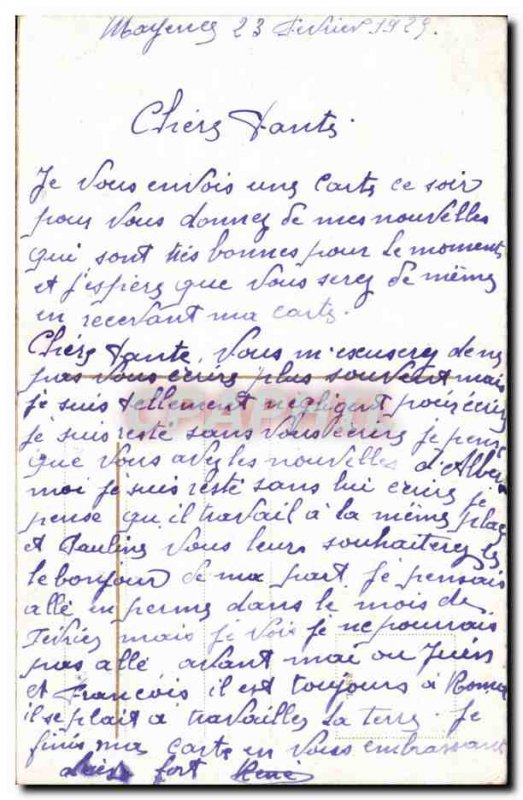 Mayence 23 Février 1929.
Chère Tante.
Je vous envois une carte ce soir
pour vous donner de mes nouvelles
qui sont très bonnes pour le moment
et j'espère que vous serez de même
en recevant ma carte.
Chère Tante, vous m'excuserez de ne
pas vous écrire plus souvent mais
je suis tellement négligent pour écrire
je suis resté sans vous écrire je pense
que vous avez les nouvelles d'Albert
moi je suis resté sans lui écrire je
pense qu'il travail à la même place
et Pauline vous leurs souhaiterez
le bonjour de ma part. je pensais
allé en perme dans le mois de
Février mais je vois je ne pourrais
pas allé avant mai ou Juin
et François il est toujours à
il se plait a travailler la terre. Je
finis ma carte en vous embrassant
fort René